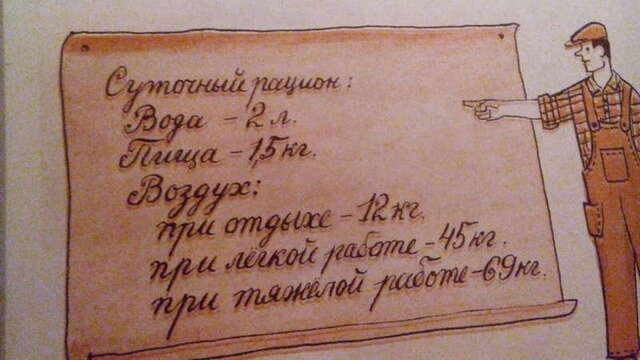 Суточный рацион:
Вода - 2 л.
Пища - 1,5 кг.
Воздух:
при отдыхе - 12 кг.
при лёгкой работе - 45 кг.
при тяжёлой работе - 69 кг.